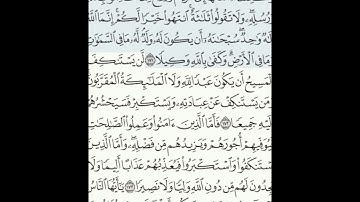 رُسُلِهِۦ وَلَا تَقُولُوا۟ ثَلَٰثَةٌ ٱنتَهُوا۟ خَيْرًا لَّكُمْ إِنَّمَا ٱللَّهُ
لَهٌ وَٰحِدٌ سُبْحَٰنَهُۥٓ أَن يَكُونَ لَهُۥ وَلَدٌ لَّهُۥ مَا فِى ٱلسَّمَٰوَٰتِ
مَا فِى ٱلْأَرْضِ وَكَفَىٰ بِٱللَّهِ وَكِيلًا ﴿١٧١﴾ لَّن يَسْتَنكِفَ
لْمَسِيحُ أَن يَكُونَ عَبْدًا لِّلَّهِ وَلَا ٱلْمَلَٰٓئِكَةُ ٱلْمُقَرَّبُونَ
مَن يَسْتَنكِفْ عَنْ عِبَادَتِهِۦ وَيَسْتَكْبِرْ فَسَيَحْشُرُهُمْ
لَيْهِ جَمِيعًا ﴿١٧٢﴾ فَأَمَّا ٱلَّذِينَ ءَامَنُوا۟ وَعَمِلُوا۟ ٱلصَّٰلِحَٰتِ
يُوَفِّيهِمْ أُجُورَهُمْ وَيَزِيدُهُم مِّن فَضْلِهِۦ وَأَمَّا ٱلَّذِينَ
سْتَنكَفُوا۟ وَٱسْتَكْبَرُوا۟ فَيُعَذِّبُهُمْ عَذَابًا أَلِيمًا وَلَا
جِدُونَ لَهُم مِّن دُونِ ٱللَّهِ وَلِيًّا وَلَا نَصِيرًا ﴿١٧٣﴾ يَٰٓأَيُّهَا ٱلنَّاسُ